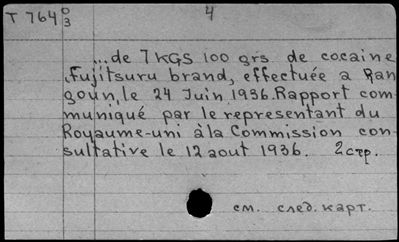 T 764 0/3 4
...de 7 KGS 100 grs de cocaine
Fujitsuru brand, effectuée a Ran
goun, le 24 Juin 1936. Rapport com-
muniqué par le representant du
Royaume-uni à la Commission con-
sultative le 12 aout 1936. 2 стр.
см. след. карт.